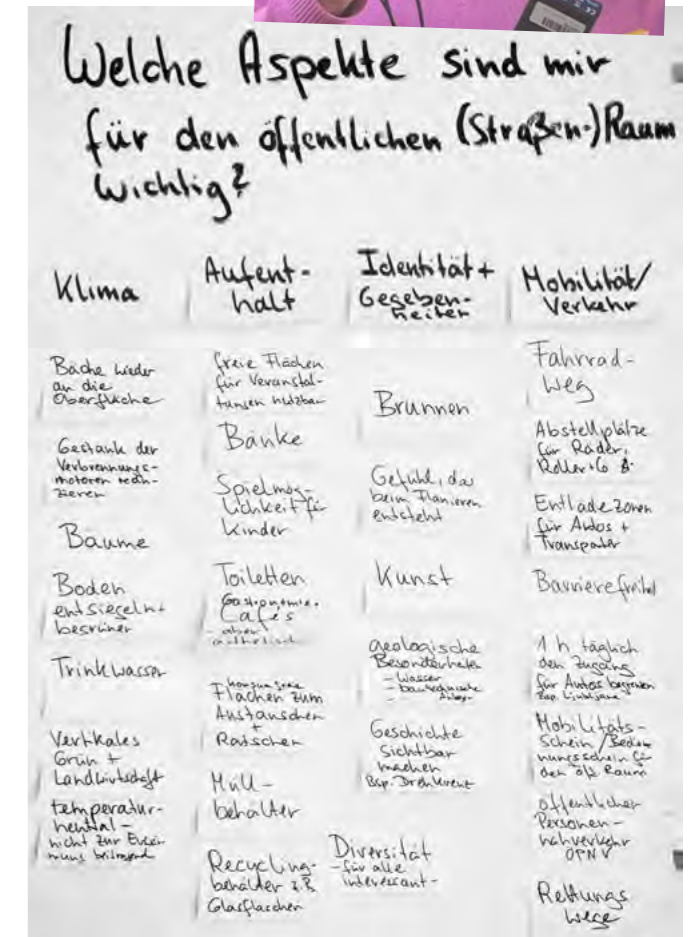 Welche Aspekte sind mir
für den öffentlichen (Straßen-)Raum
wichtig?
Klima
Bäche wieder
an die
Oberfläche
Gestank der
Verbrennungs-
motoren redu-
zieren
Bäume
Boden
entsiegeln +
Trinkwasser
Vertikales
Grün +
Landwirtschaft
temperatur-
neutral -
nicht zur
Aufent-
halt
freie Flächen
für Veranstal-
tungen nutzbar
Bänke
Spielmög-
lichkeit für
Kinder
Toiletten
Gastronomie.
Cafés
- aber
Flächen zum
Austauschen
+
Ratschen
Müll-
behälter
Recycling-
behälter z.B.
Glasflaschen
Identität +
Gegeben-
heiten
Brunnen
Gefühl, das
beim Flanieren
entsteht
Kunst
geologische
Besonderheiten
- Wasser
Geschichte
sichtbar
machen
Diversität
- für alle
interessant -
Mobilität/
Verkehr
Fahrrad-
weg
Abstellplätze
für Räder,
Roller + Co
Entladezonen
für Autos +
Transporter
1 h täglich
den Zugang
für Autos begrenzen
Bsp. Ljubljana
Mobilitäts-
schein /
den öff. Raum
öffentlicher
Personen-
nahverkehr
ÖPNV
Rettungs
wege